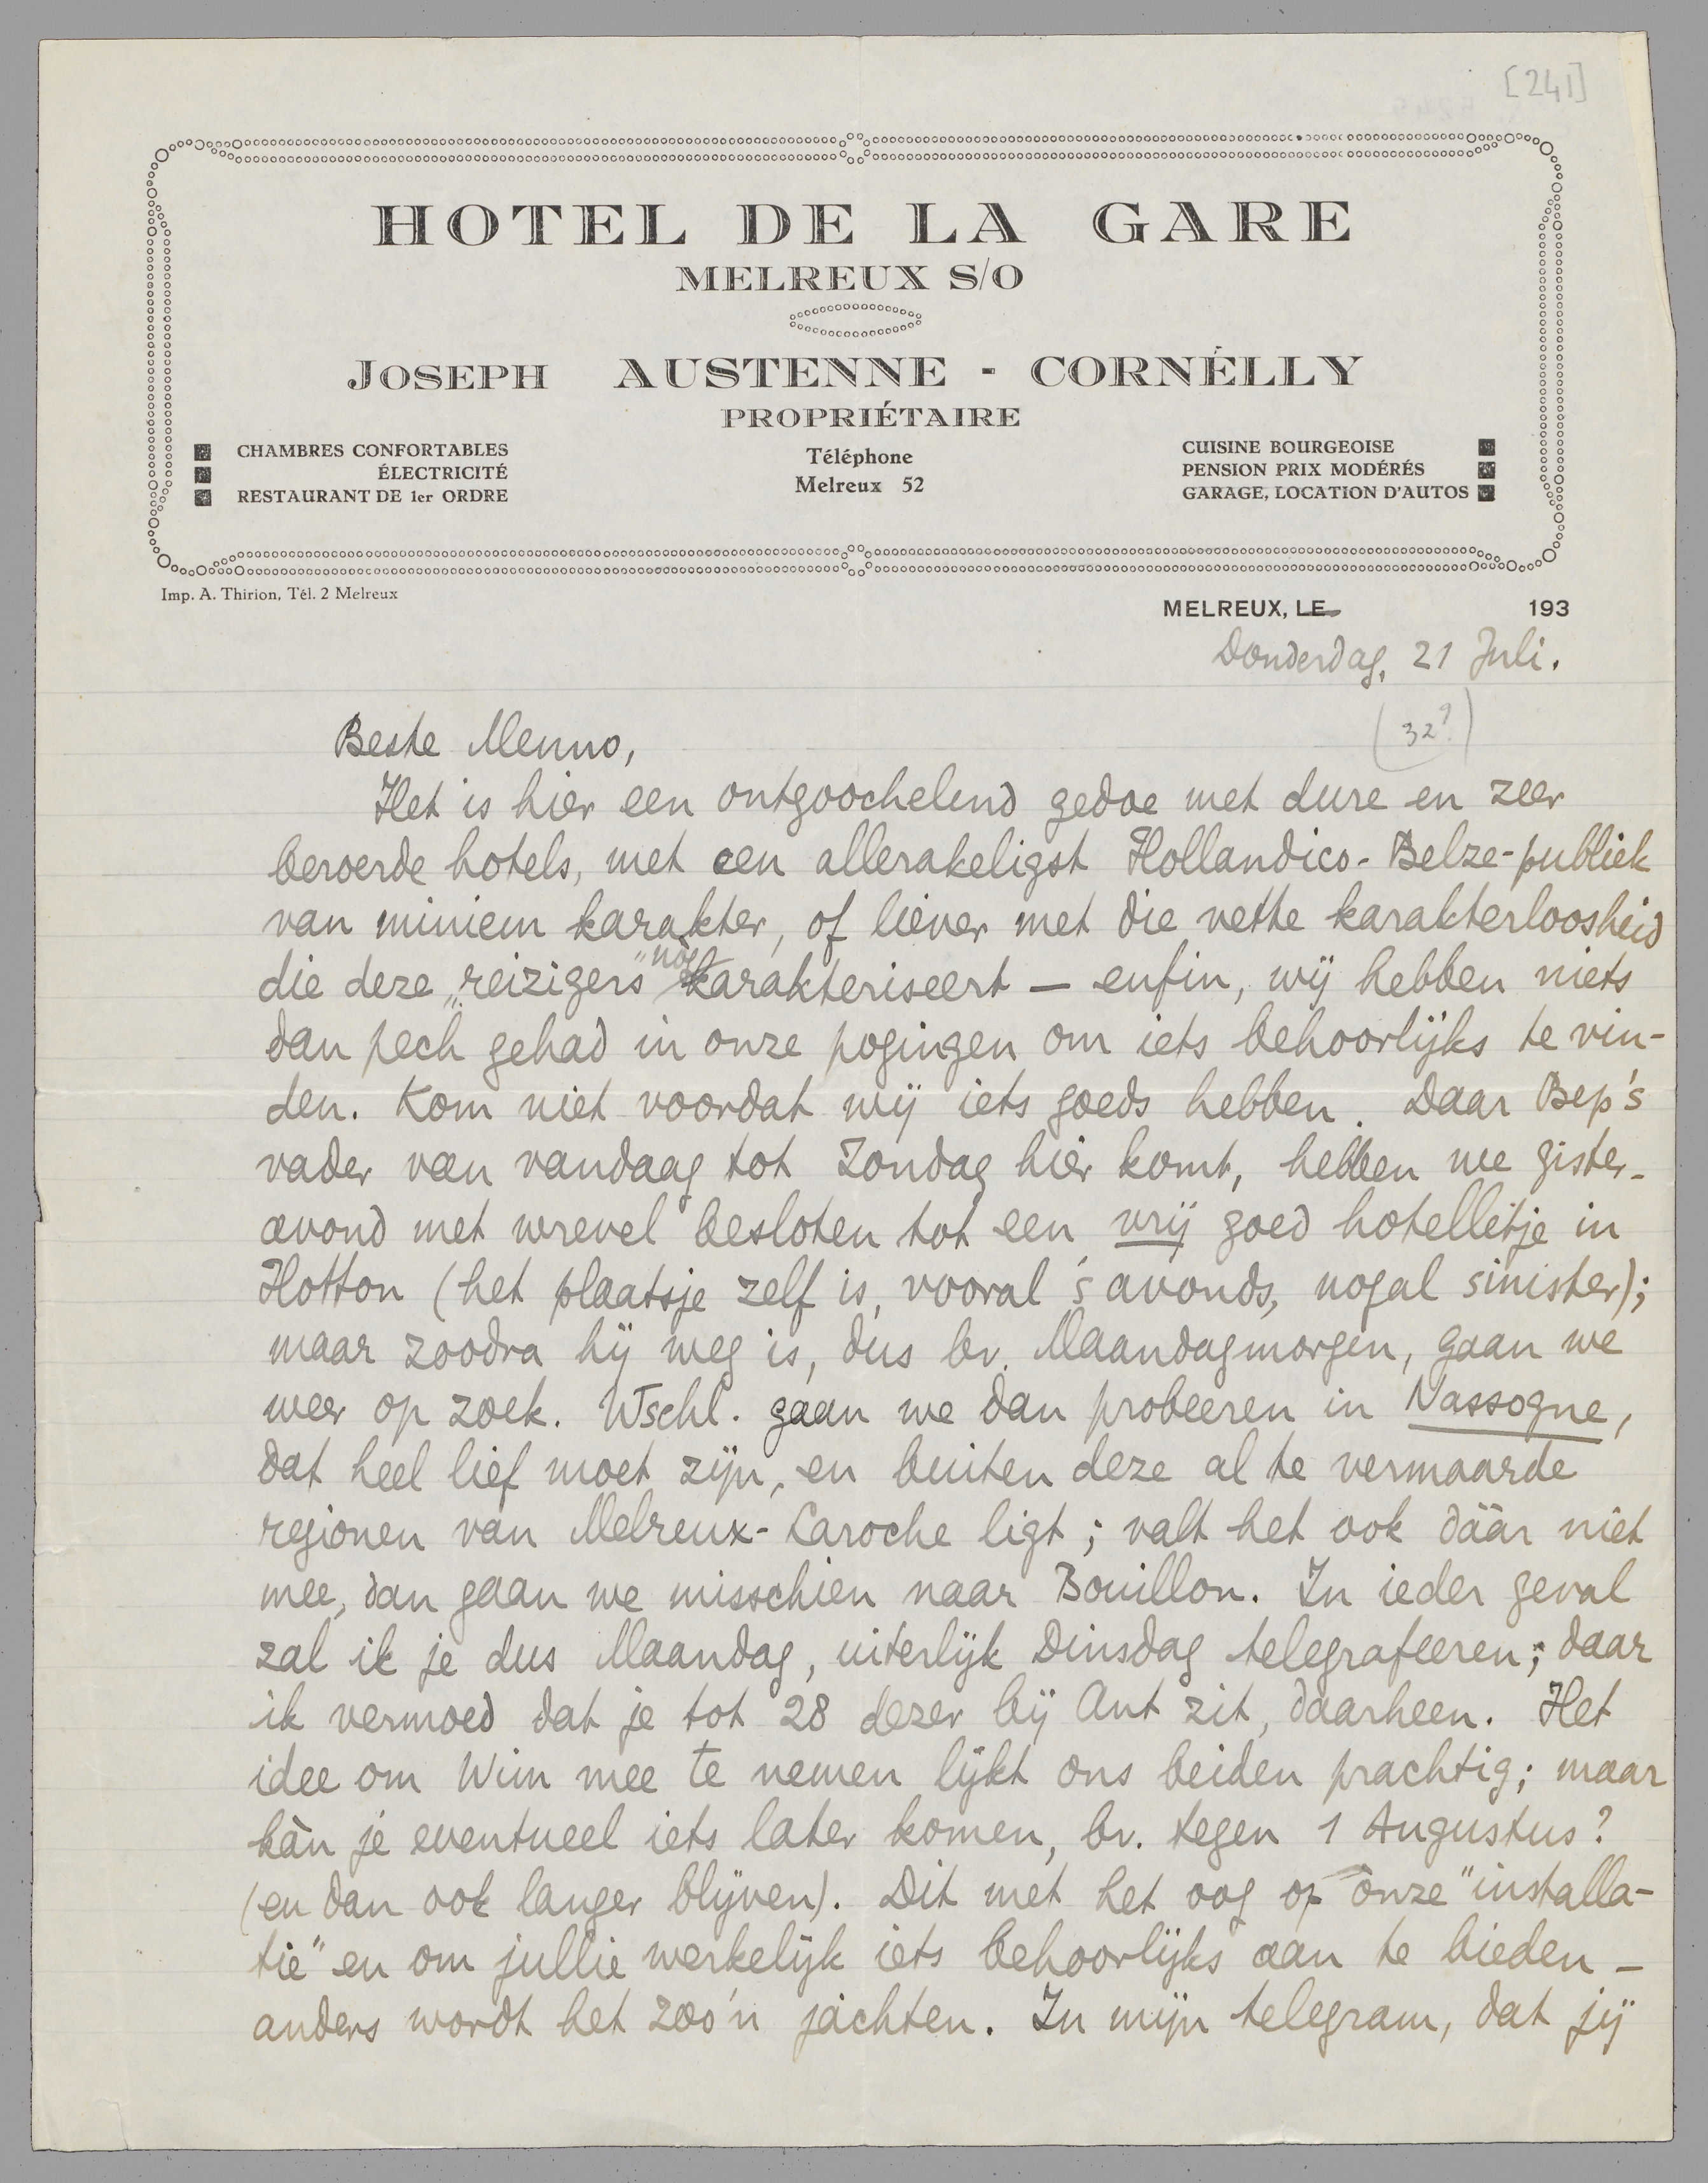 [241]
HOTEL DE LA GARE
MELREUX S/O
JOSEPH AUSTENNE - CORNÉLLY
PROPRIÉTAIRE
CHAMBRES CONFORTABLES
ÉLECTRICITÉ
RESTAURANT DE 1er ORDRE
Téléphone
Melreux 52
CUISINE BOURGEOISE
PENSION PRIX MODÉRÉS
GARAGE, LOCATION D'AUTOS
Imp. A. Thirion, Tél. 2 Melreux
MELREUX, LE 193
Donderdag, 21 Juli.
(32?)
Beste Menno,
Het is hier een ontgoochelend gedoe met dure en zeer
beroerde hotels, met een allerakeligst Hollandico-Belze-publiek
van miniem karakter, of liever met die vette karakterloosheid
die deze „reizigers" nòg karakteriseert — enfin, wij hebben niets
dan pech gehad in onze pogingen om iets behoorlijks te vin-
den. Kom niet voordat wij iets goeds hebben. Daar Bep's
vader van vandaag tot Zondag hier komt, hebben we gister-
avond met wrevel besloten tot een vrij goed hotelletje in
Hotton (het plaatsje zelf is, vooral 's avonds, nogal sinister);
maar zoodra hij weg is, dus bv. Maandagmorgen, gaan we
weer op zoek. Wschl. gaan we dan probeeren in Nassogne,
dat heel lief moet zijn, en buiten deze al te vermaarde
regionen van Melreux-Laroche ligt; valt het ook dáár niet
mee, dan gaan we misschien naar Bouillon. In ieder geval
zal ik je dus Maandag, uiterlijk Dinsdag telegrafeeren; daar
ik vermoed dat je tot 28 dezer bij Ant zit, daarheen. Het
idee om Wim mee te nemen lijkt ons beiden prachtig; maar
kàn je eventueel iets later komen, bv. tegen 1 Augustus?
(en dan ook langer blijven). Dit met het oog op onze "installa-
tie" en om jullie werkelijk iets behoorlijks aan te bieden —
anders wordt het zoo'n jachten. In mijn telegram, dat jij